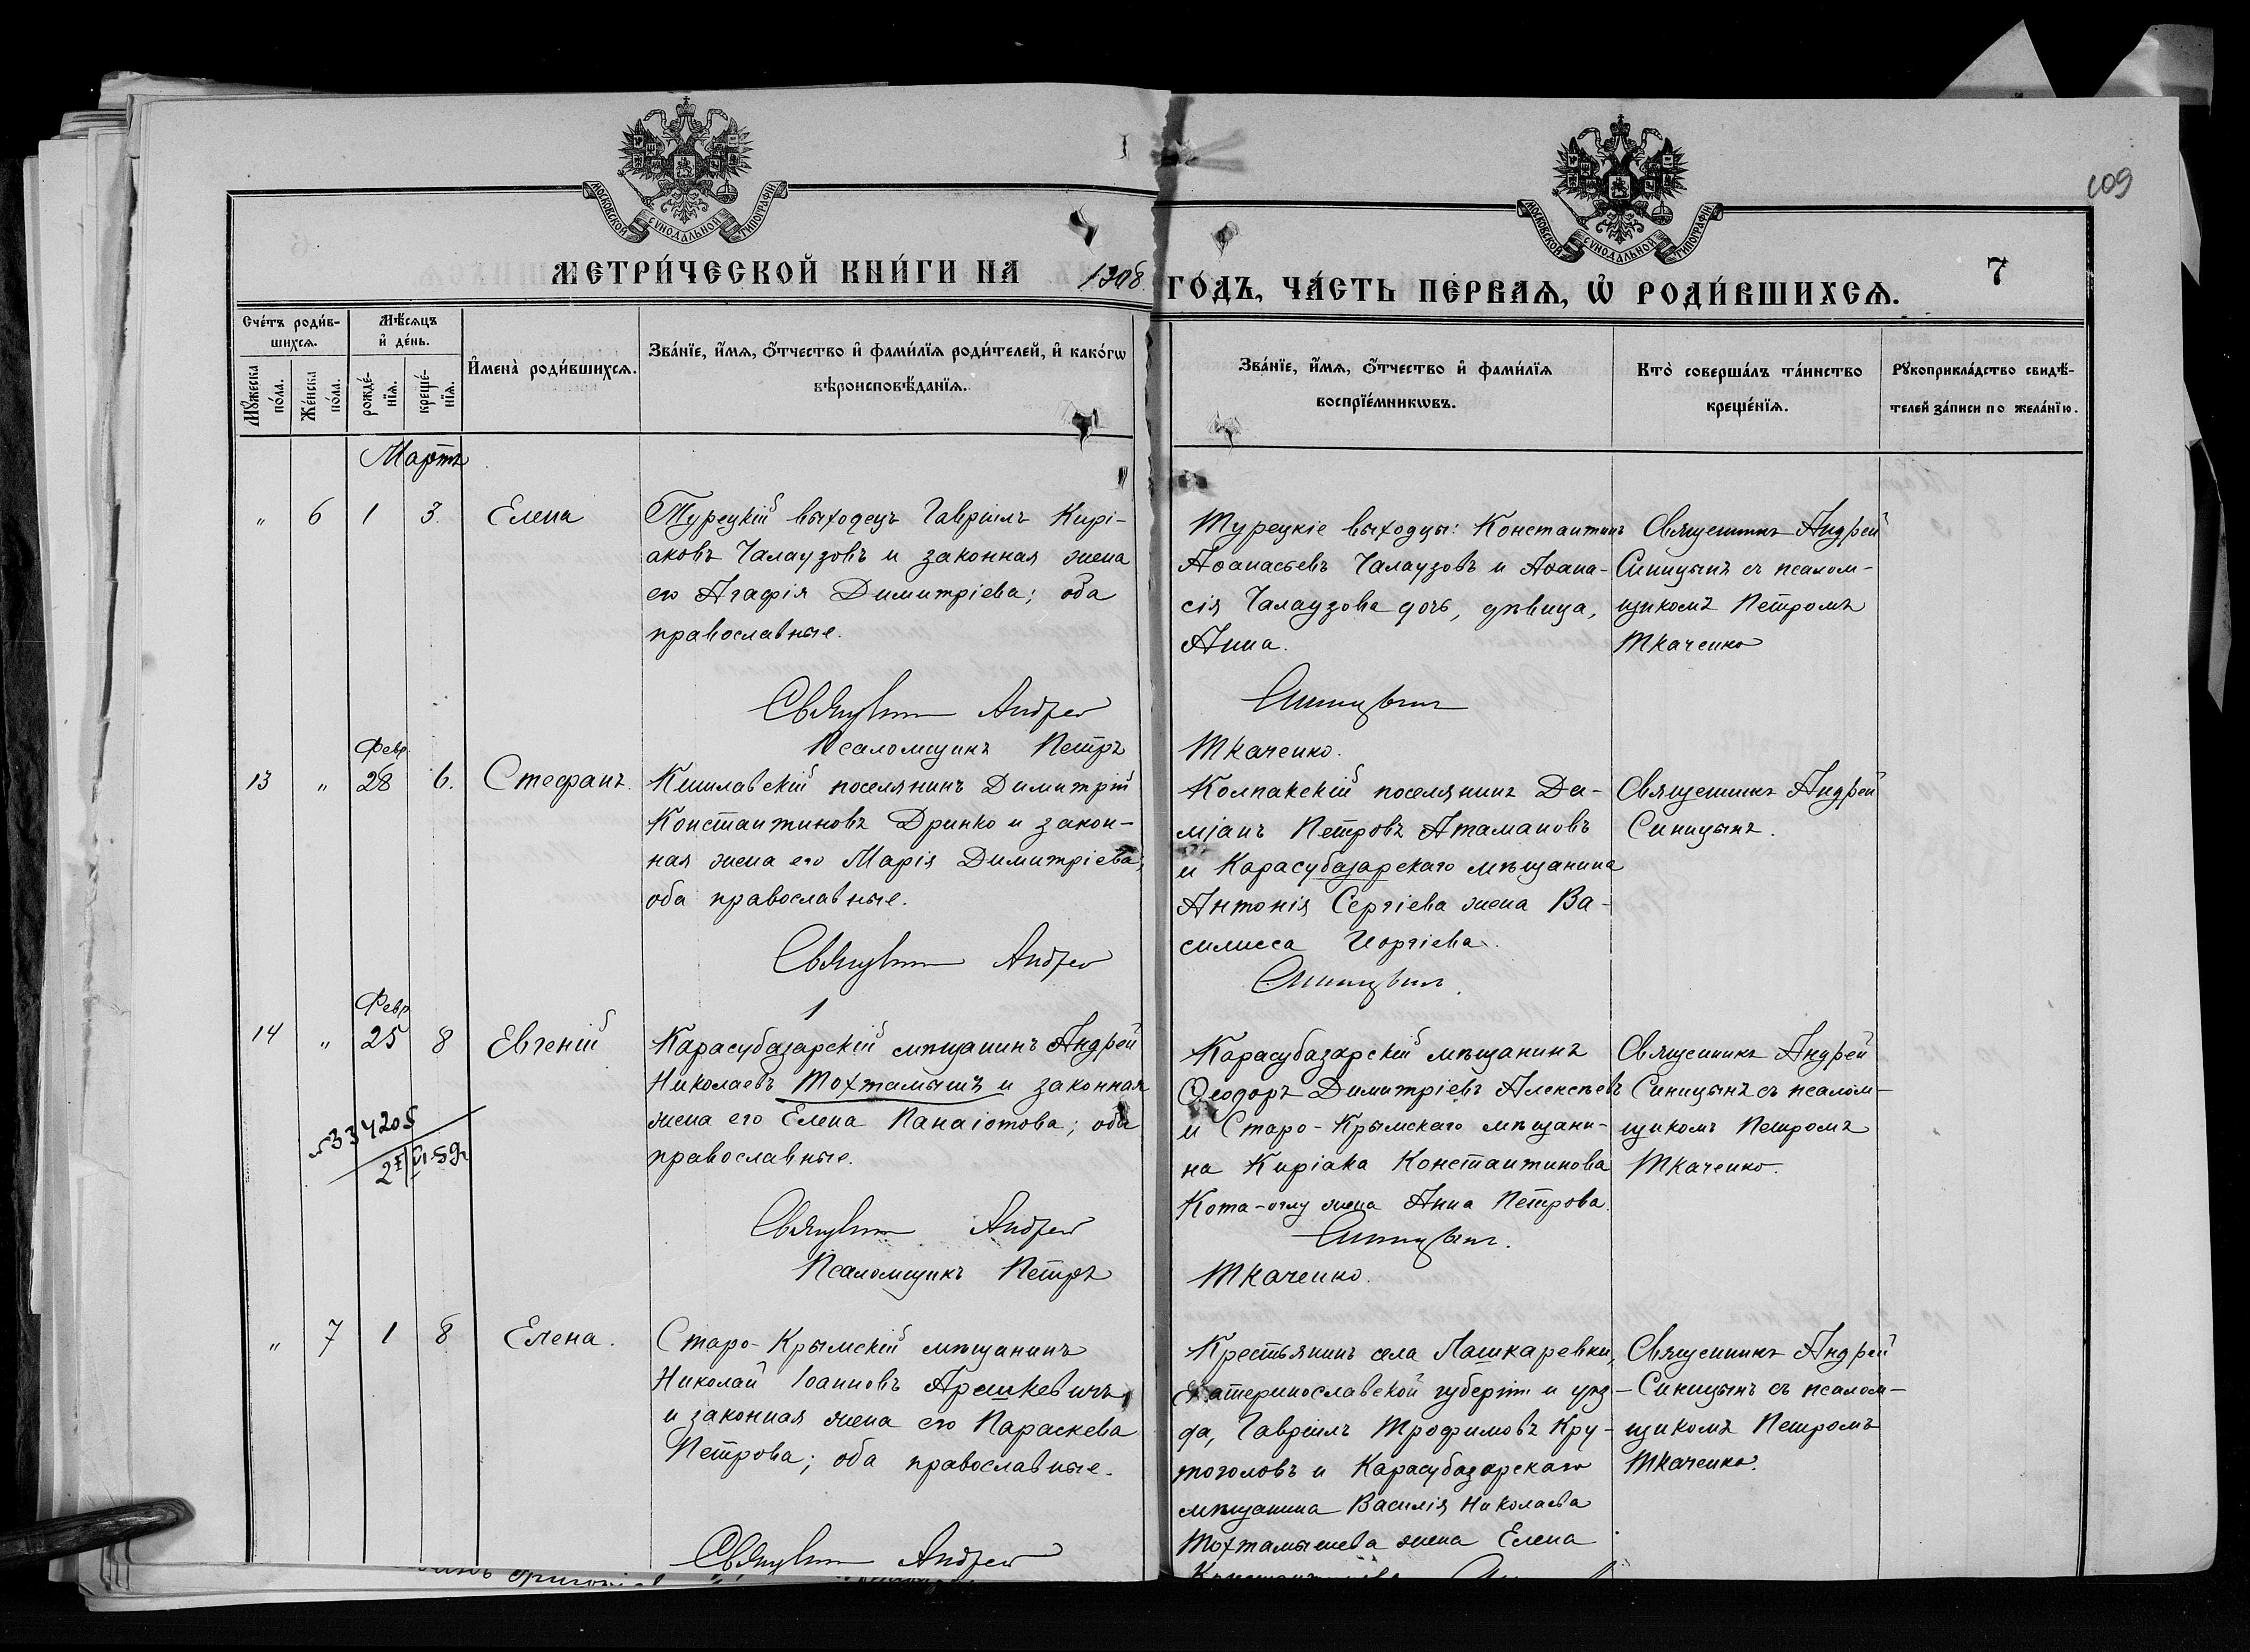 МОСКОВСКОЙ СУНОДАЛЬНОЙ ТИПОГРАФІИ
МОСКОВСКОЙ СУНОДАЛЬНОЙ ТИПОГРАФІИ
109
МЕТРИ́ЧЕСКОЙ КНИ́ГИ НА 1908
ГО́ДЪ, ЧА́СТЬ ПЕ́РВАЯ, Ѡ҆ РОДИ́ВШИХСЯ.
7
Сче́тъ роди́в-
шихся.
Мѣ́сяцъ
и҆ де́нь.
Имена̀ роди́вшихся.
Зва́нїе, и҆́мя, ѻ҆́тчество и҆ фами́лїя роди́телей, и҆ како́гѡ
вѣроисповѣ́данїя.
Мꙋ́жеска
по́ла.
Же́нска
по́ла.
рожде́-
нїя.
креще́-
нїя.
Зва́нїе, и҆́мя, ѻ҆́тчество и҆ фами́лїя
воспрїе́мникѡвъ.
Кто̀ соверша́лъ та́инство
креще́нїя.
Рꙋкоприкла́дство свидѣ́-
телей за́писи по жела́нїю.
Мартъ
" 6 1 3. Елена
Турецкій выходецъ Гавріилъ Кирі-
аковъ Чалаузовъ и законная жена
его Агафія Димитріева; оба
православные.
Священник Андрей
Псаломщикъ Петръ
Турецкіе выходцы: Константинъ
Аѳанасьевъ Чалаузовъ и Аѳана-
сія Чалаузова дочь, дѣвица,
Анна.
Синицынъ
Ткаченко.
Священникъ Андрей
Синицынъ съ псалом-
щикомъ Петромъ
Ткаченко
Февр.
13 " 28 6. Стефанъ.
Кишлавскій поселянинъ Димитрій
Константиновъ Дринко и закон-
ная жена его Марія Димитріева;
оба православные.
Священник Андрей
Колпакскій поселянинъ Да-
міанъ Петровъ Атамановъ
и Карасубазарскаго мѣщанина
Антонія Сергіева жена Ва-
силисса Георгіева.
Синицынъ.
Священникъ Андрей
Синицынъ.
Февр
14 " 25 8 Евгеній
Карасубазарскій мѣщанинъ Андрей
Николаевъ Тохтамышъ и законная
жена его Елена Панаіотова; оба
православные.
Священник Андрей
Псаломщикъ Петръ
Карасубазарскій мѣщанинъ
Ѳеодоръ Димитріевъ Алексѣевъ
и Старо-Крымскаго мѣщани-
на Киріака Константинова
Кота-оглу жена Анна Петрова.
Синицынъ.
Ткаченко.
Священникъ Андрей
Синицынъ съ псалом-
щикомъ Петромъ
Ткаченко.
" 7 1 8 Елена.
Старо-Крымскій мѣщанинъ
Николай Іоанновъ Арешкевичъ
и законная жена его Параскева
Петрова; оба православные.
Священник Андрей
Крестьянинъ села Лашкаревки,
Екатеринославской губерніи и уѣз-
да, Гавріилъ Трофимовъ Кру-
тоголовъ и Карасубазарскаго
мѣщанина Василія Николаева
Тохтамышева жена Елена
Священникъ Андрей
Синицынъ съ псалом-
щикомъ Петромъ
Ткаченко.